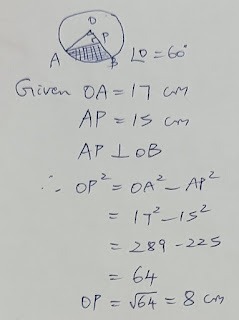 O
P
A B ∠O = 60°
Given OA = 17 cm
AP = 15 cm
AP ⊥ OB
∴ OP² = OA² - AP²
= 17² - 15²
= 289 - 225
= 64
OP = √64 = 8 cm